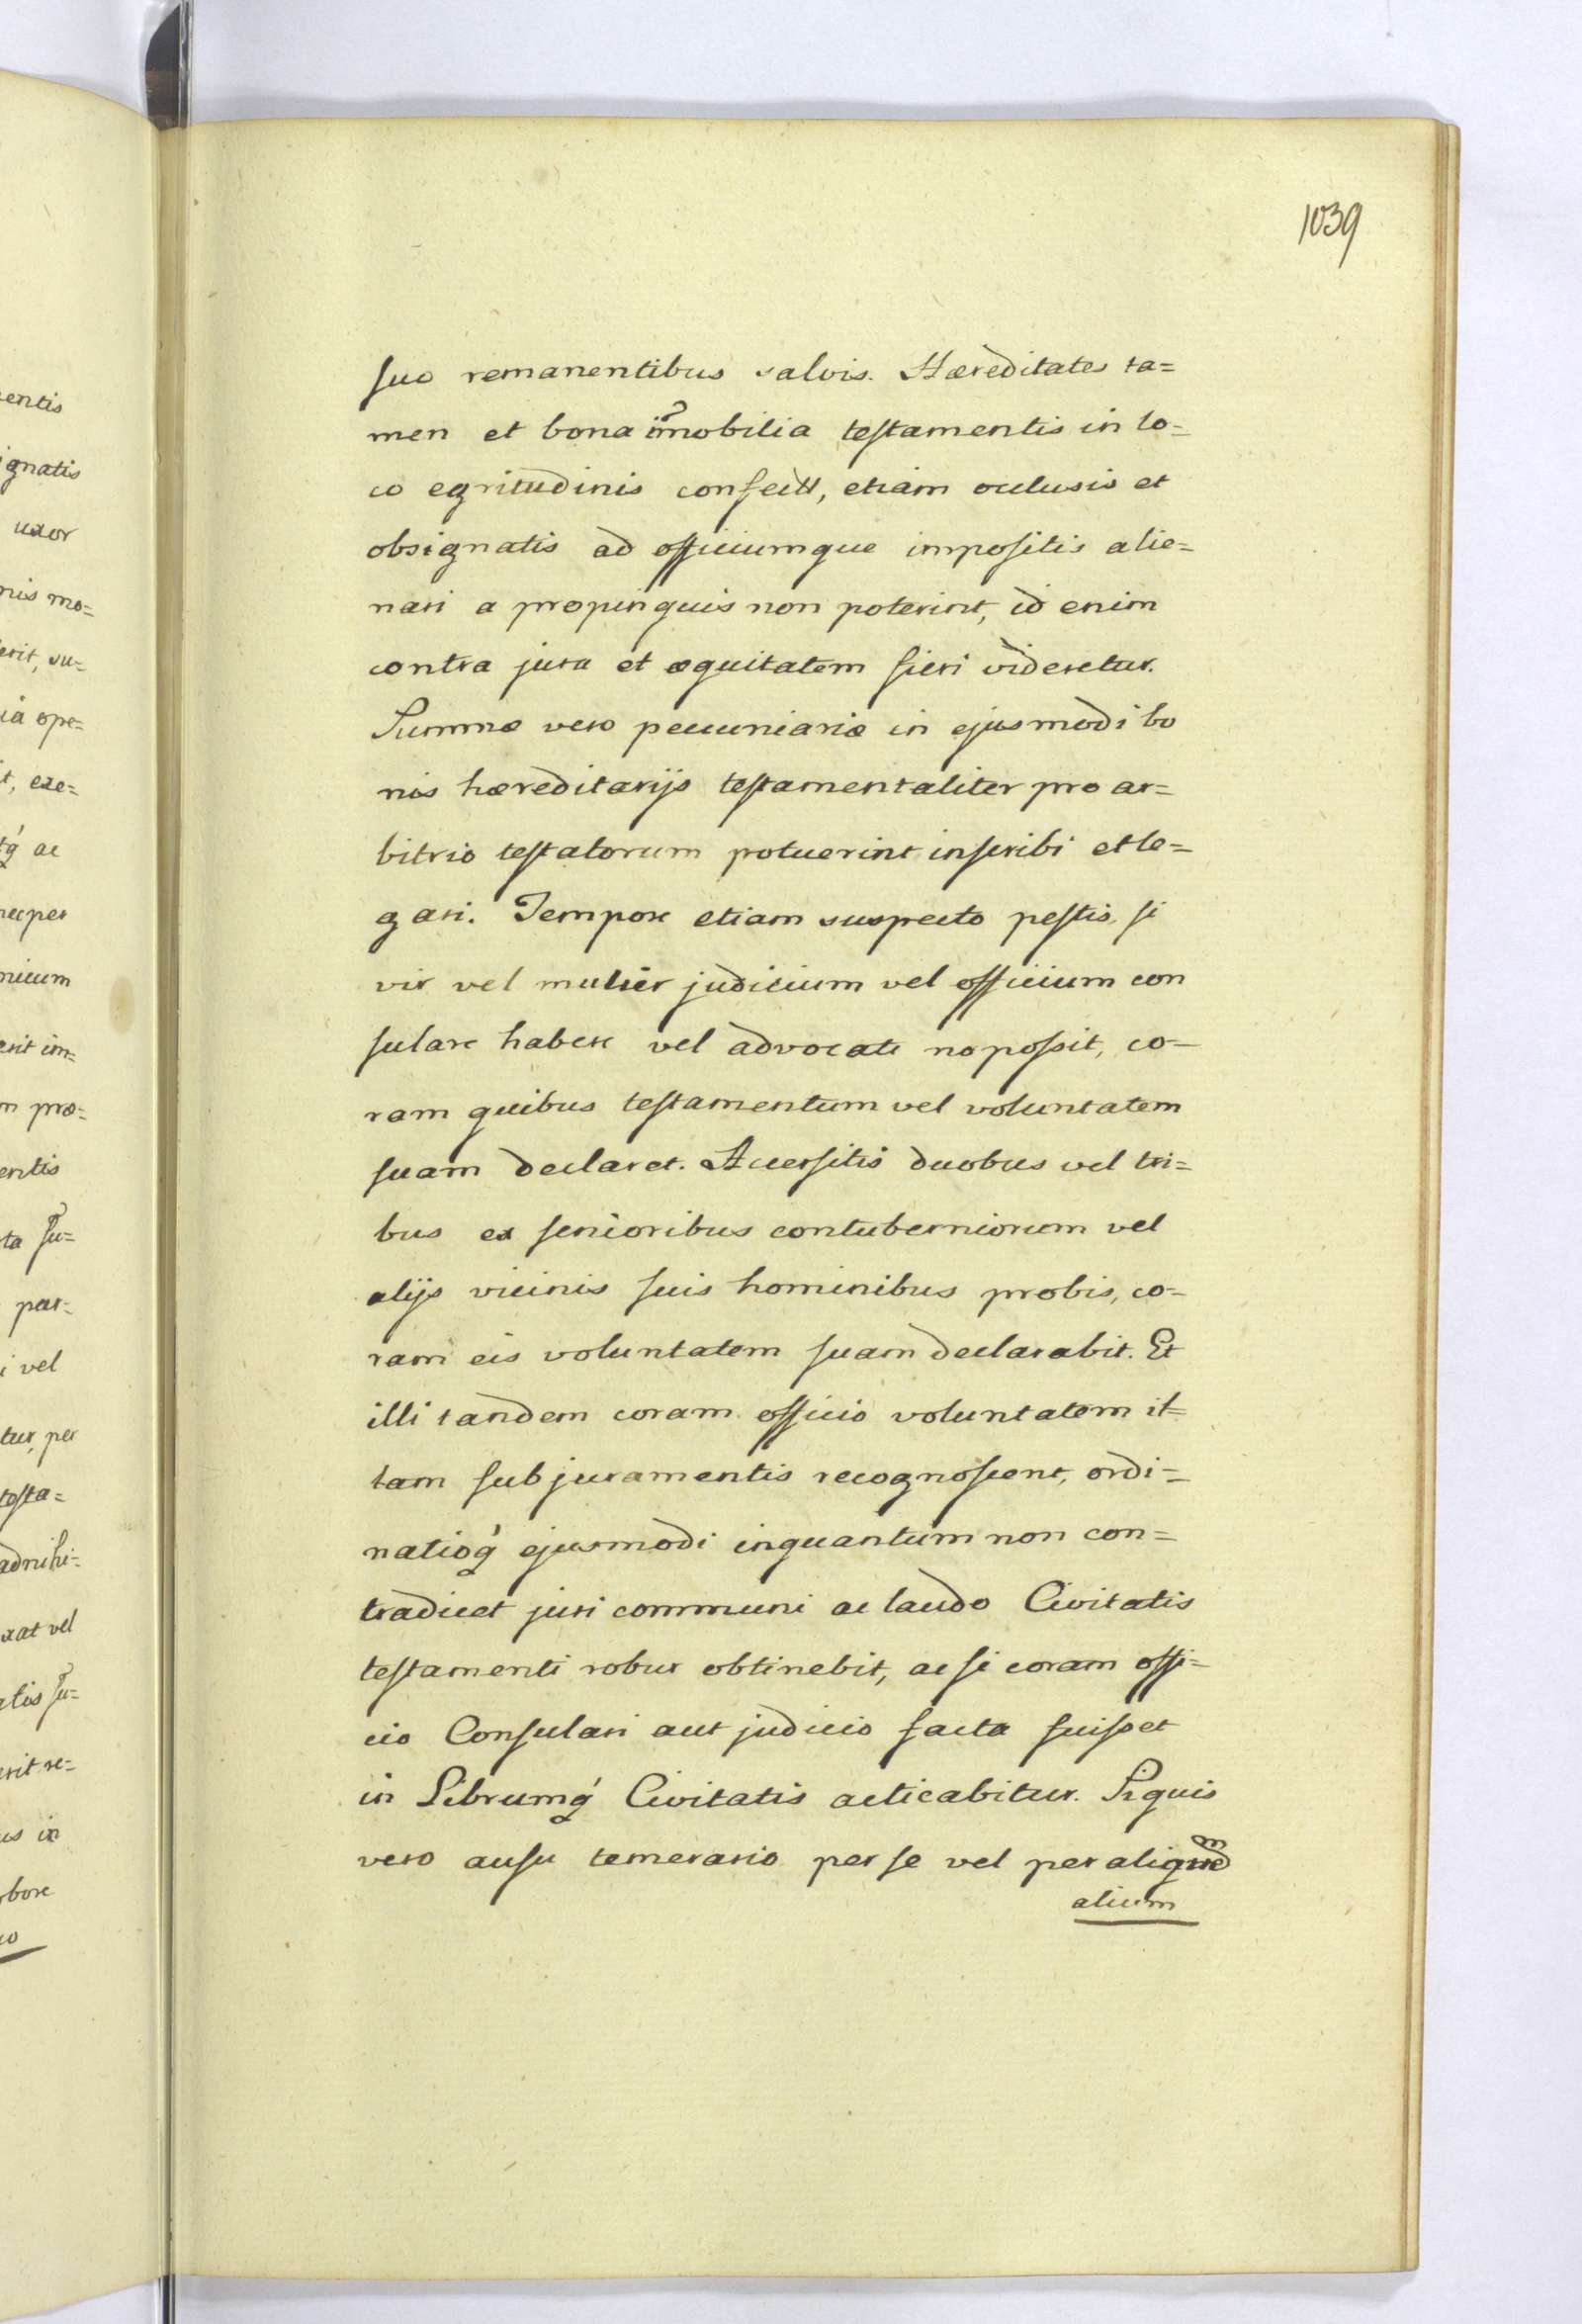 1039
suo remanentibus salvis. Hæreditates ta=
men et bona im̃obilia testamentis in lo=
co egritudinis confectis, etiam oclusis et
obsignatis ad officiumque impositis alie=
nari a propinquis non poterint, id enim
contra jura et æquitatem fieri videretur.
Summæ vero pecuniariæ in ejusmodi bo
nis hæreditarijs testamentaliter pro ar=
bitrio testatorum potuerint inscribi et le=
gari. Tempore etiam suspecto pestis, si
vir vel mulier judicium vel officium con
sulare habere vel advocate no possit, co=
ram quibus testamentum vel voluntatem
suam declaret. Accersitis duobus vel tri=
bus ex senioribus contuberniorum vel
alijs vicinis suis hominibus probis, co=
ram eis voluntatem suam declarabit. Et
illi tandem coram officio voluntatem il=
lam sub juramentis recognoscent, ordi=
natioq́ ejusmodi inquantum non con=
tradicet juri communi ac laudo Civitatis
testamenti robur obtinebit, ac si coram offi=
cio Consulari aut judicio facta fuisset
in Librumq́ Civitatis acticabitur. Siquis
vero ausu temerario per se vel per
alium
entis
ignatis
uxor
nis mo=
erit, su=
ia ope=
t, exe=
tq́ ac
nec per
nicum
erit im=
m præ=
entis
ta su=
par=
i vel
tur, per
testa=
adnihi=
xat vel
tis su=
erit re=
us in
bore
io